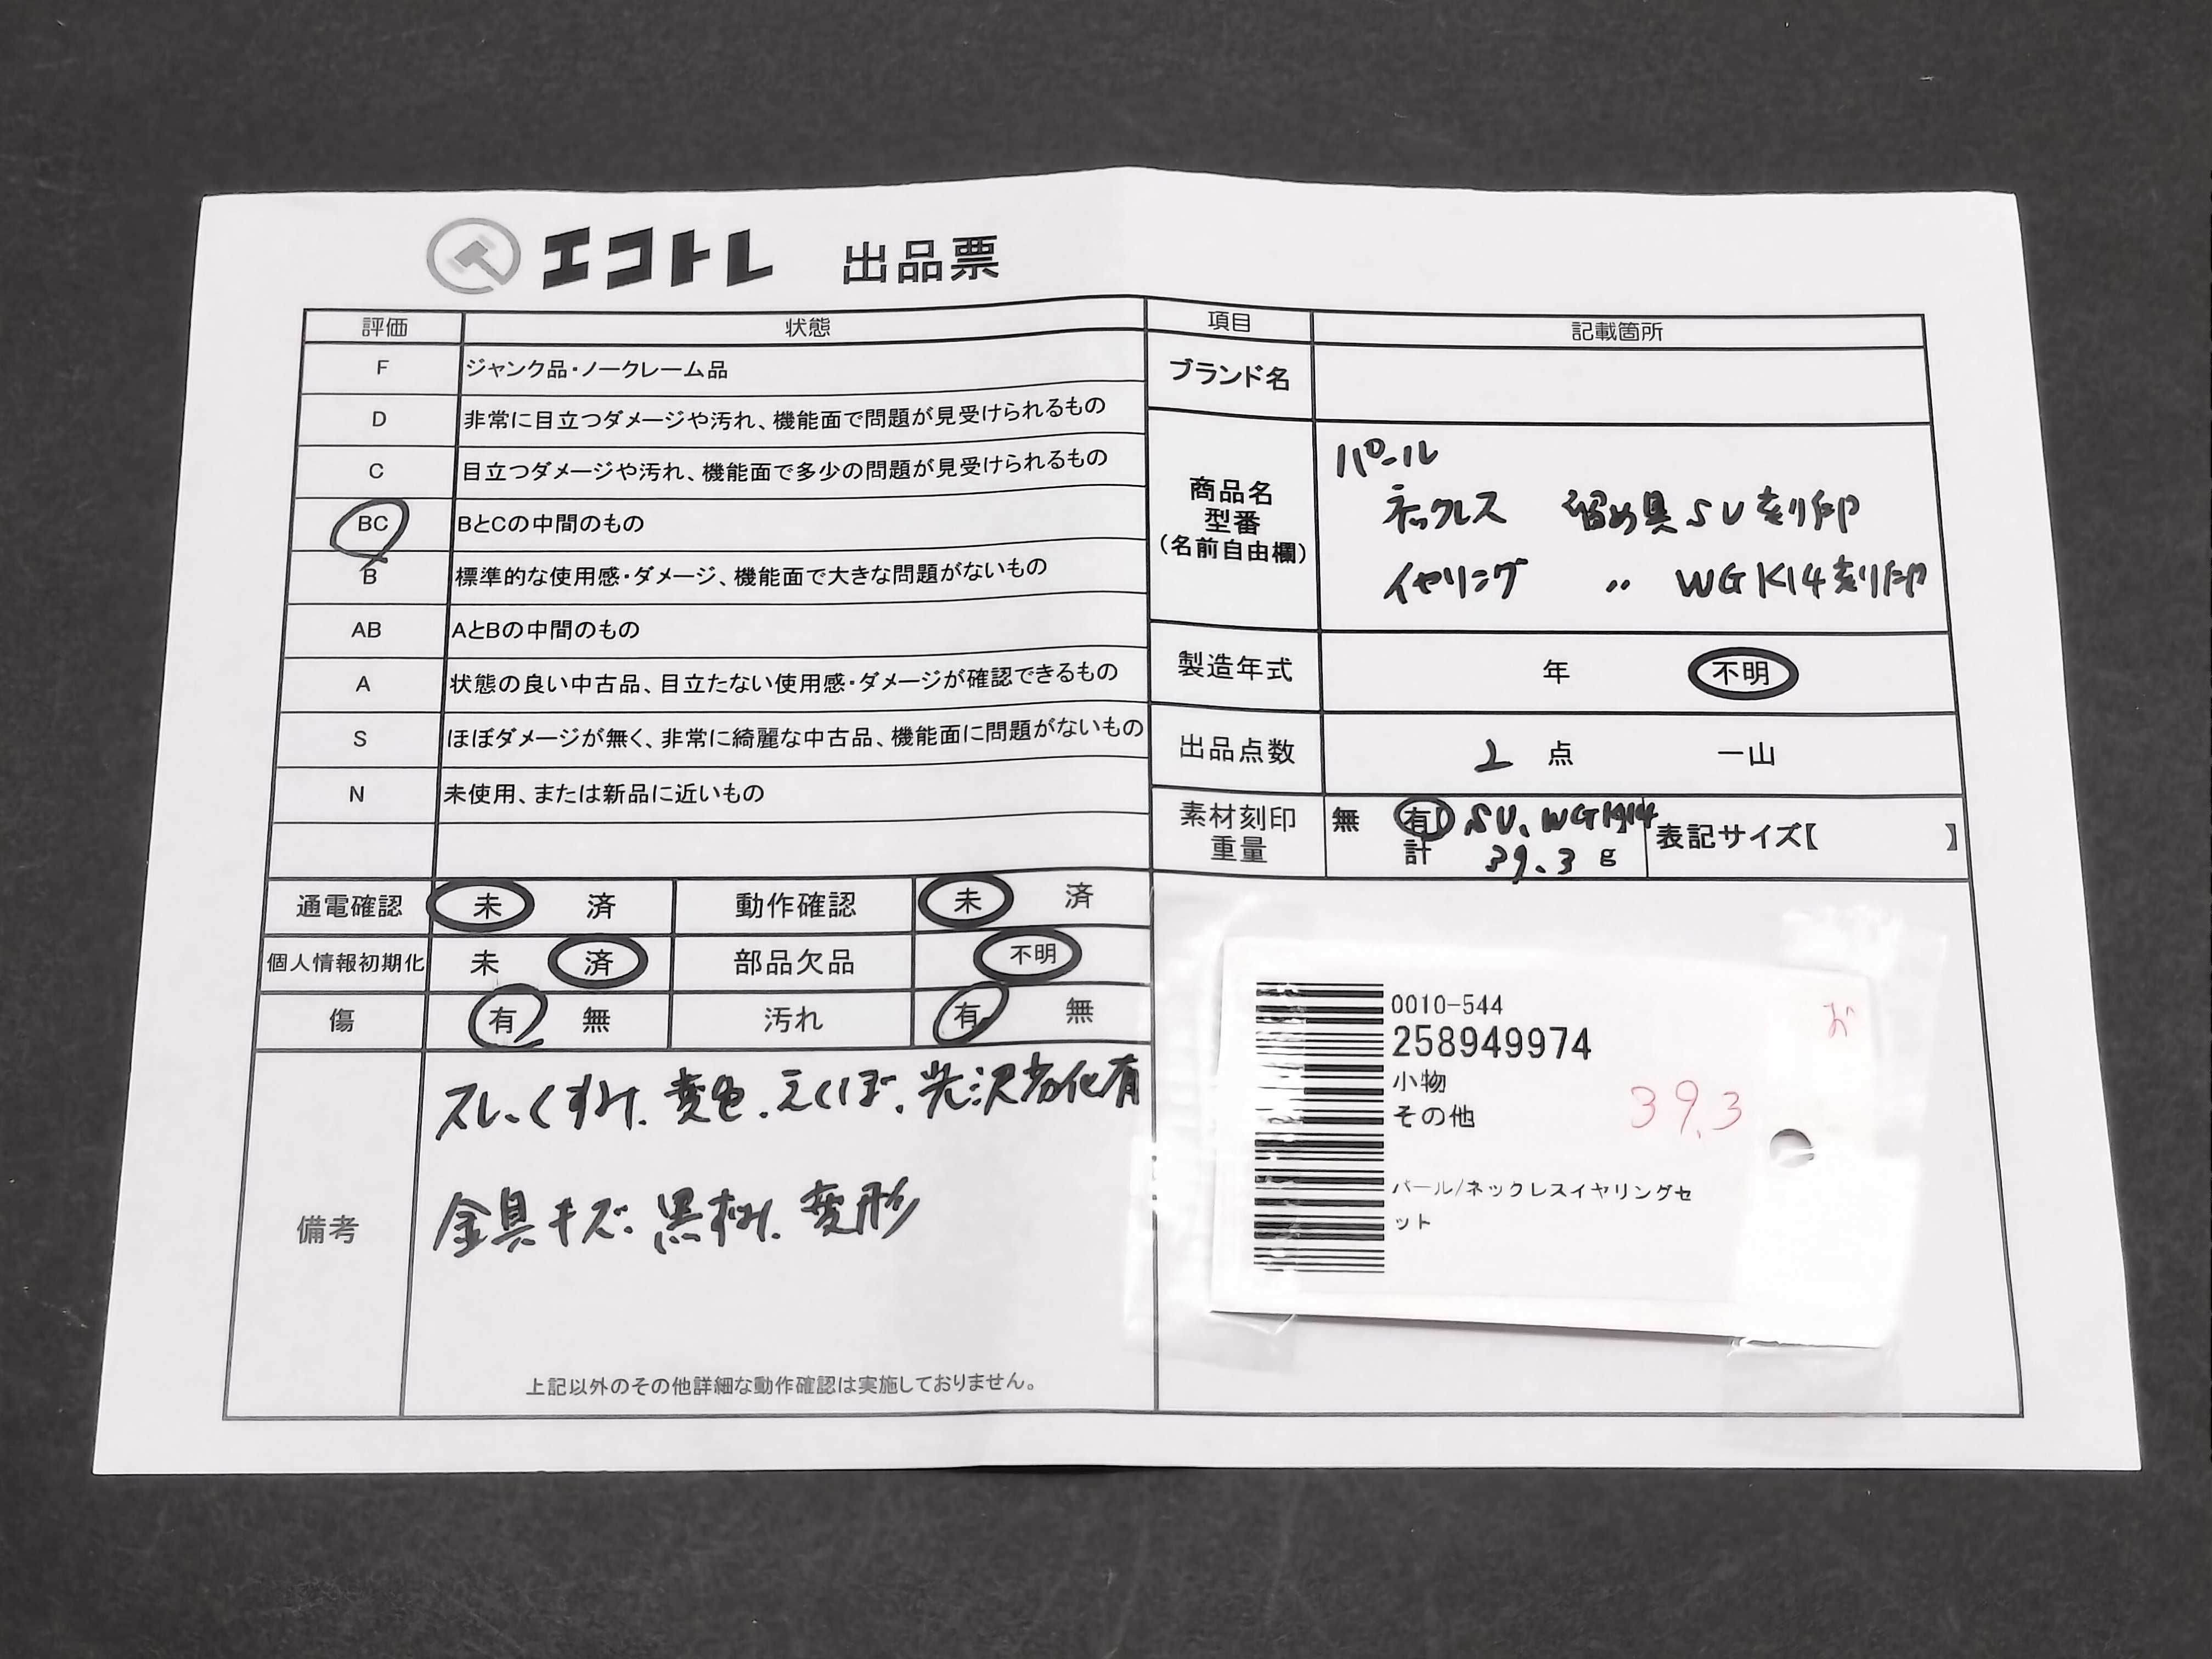 エコトレ 出品票
評価 状態
F ジャンク品・ノークレーム品
D 非常に目立つダメージや汚れ、機能面で問題が見受けられるもの
C 目立つダメージや汚れ、機能面で多少の問題が見受けられるもの
BC BとCの中間のもの
B 標準的な使用感・ダメージ、機能面で大きな問題がないもの
AB AとBの中間のもの
A 状態の良い中古品、目立たない使用感・ダメージが確認できるもの
S ほぼダメージが無く、非常に綺麗な中古品、機能面に問題がないもの
N 未使用、または新品に近いもの
通電確認 未 済 動作確認 未 済
個人情報初期化 未 済 部品欠品 不明
傷 有 無 汚れ 有 無
備考
スレ、くすみ、変色、えくぼ、光沢劣化有
金具キズ、黒ずみ、変形
上記以外のその他詳細な動作確認は実施しておりません。
項目 記載箇所
ブランド名
商品名
型番
(名前自由欄)
パール
ネックレス 留め具SV刻印
イヤリング 〃 WGK14刻印
製造年式 年 不明
出品点数 2 点 一山
素材刻印 無 有 SV、WGK14
重量 計 39.3 g 表記サイズ【 】
0010-544
258949974
小物
その他
パール/ネックレスイヤリングセ
ット
お
39.3